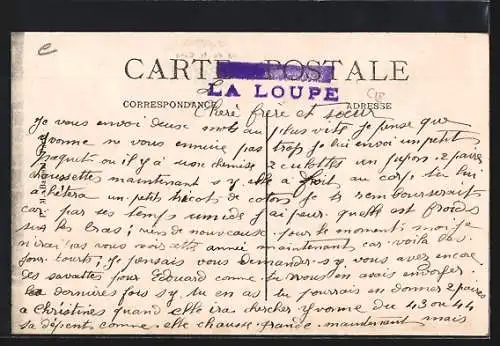 CARTE POSTALE
LA LOUPE
CORRESPONDANCE ADRESSE
Cheré frère et sœur
Je vous envoi deux mots au plus vite je pense que
Yvonne ne vous ennuire pas trop je lui envoi un petit
paquet ou il y a une chemise 2 culottes un jupon 2 paire
chaussettes maintenant s y elle a froit au corp tu lui
achètera un petit tricot de coton je te rembourserait
car par ses temps umide j'ai peur quelle est froids
sur les bras; rien de nouveaux pour le moment; moi je
n'irai pas vous voir cette année maintenant car voila les
jour court; je pensais vous demander s y vous avez encore
des savattes pour Edouard comme tu nous en avais envoyer
les dernieres fois s y tu en as tu pourrais en donner 2 paires
a Christines quand elle ira chercher Yvonne du 43 ou 44
sa dépent comme elle chausse grande maintenant mais